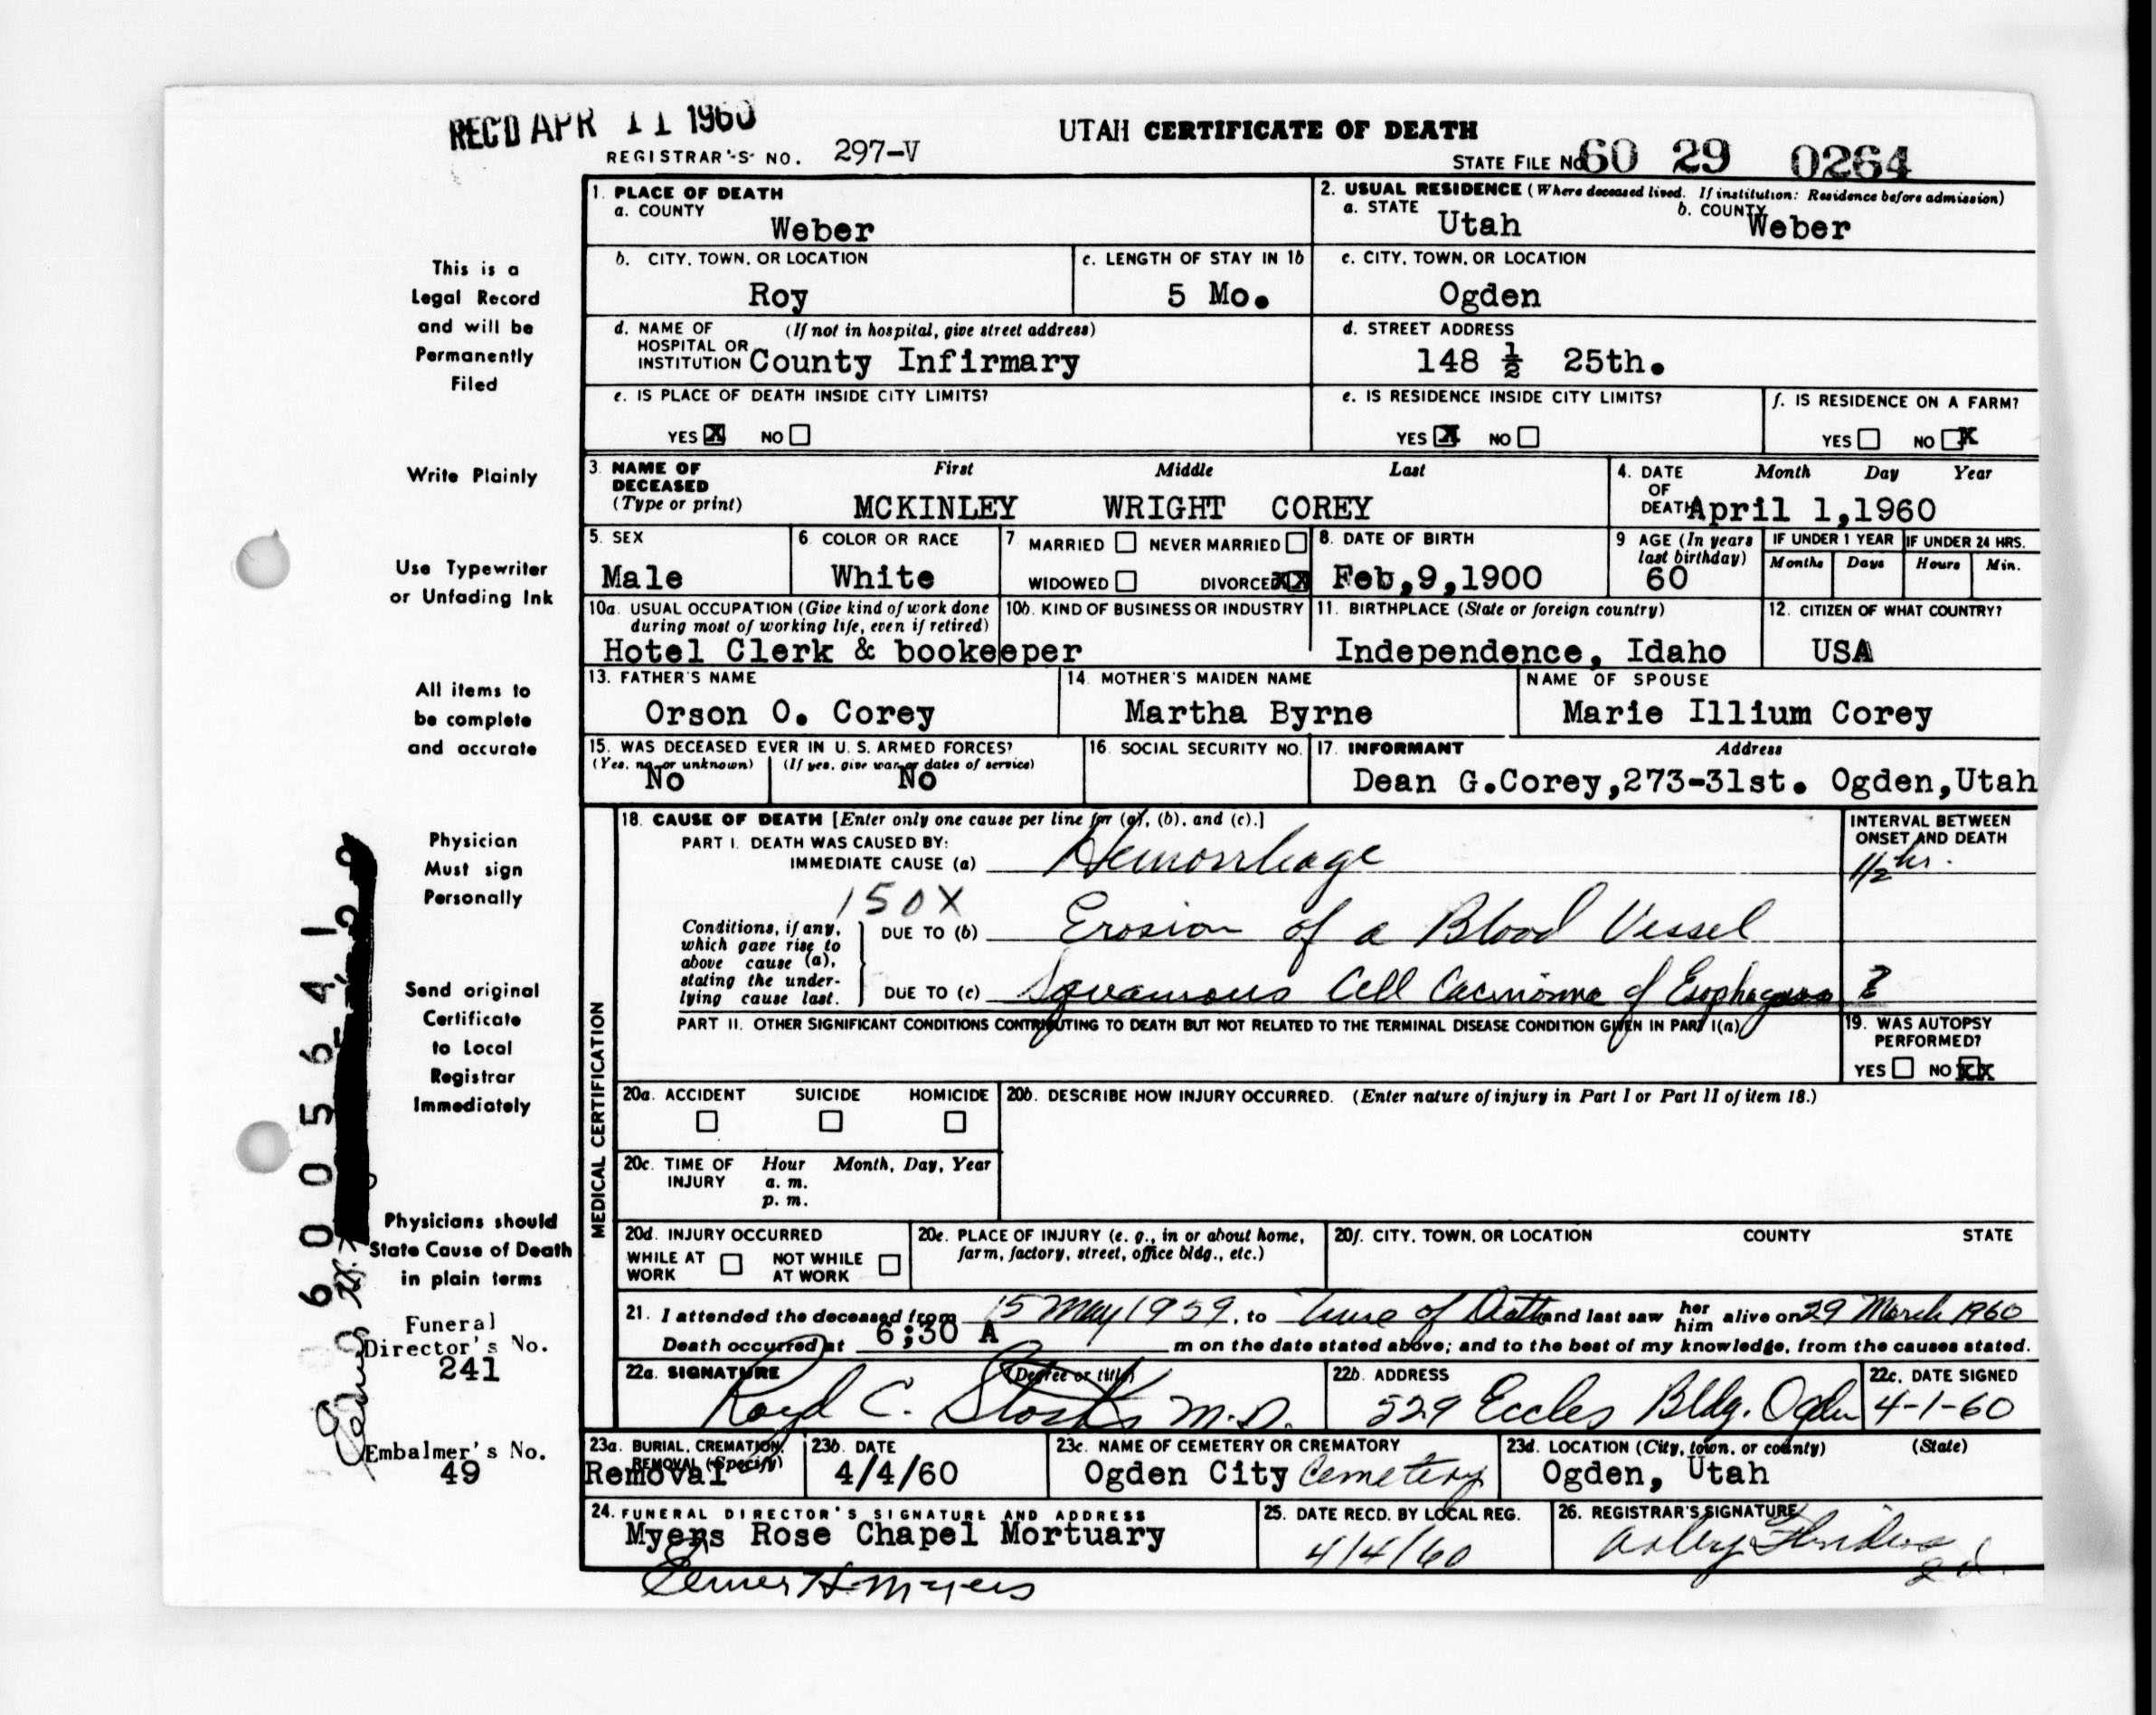 REC'D APR 11 1960
UTAH CERTIFICATE OF DEATH
REGISTRAR'S NO. 297-V
STATE FILE NO. 60 29 0264
1. PLACE OF DEATH
a. COUNTY
Weber
2. USUAL RESIDENCE (Where deceased lived. If institution: Residence before admission)
a. STATE Utah b. COUNTY Weber
b. CITY, TOWN, OR LOCATION
Roy
c. LENGTH OF STAY IN 1b
5 Mo.
c. CITY, TOWN, OR LOCATION
Ogden
d. NAME OF (If not in hospital, give street address)
HOSPITAL OR
INSTITUTION County Infirmary
d. STREET ADDRESS
148 ½ 25th.
e. IS PLACE OF DEATH INSIDE CITY LIMITS?
YES X NO
e. IS RESIDENCE INSIDE CITY LIMITS?
YES X NO
f. IS RESIDENCE ON A FARM?
YES NO X
3. NAME OF DECEASED (Type or print)
First Middle Last
MCKINLEY WRIGHT COREY
4. DATE OF DEATH Month Day Year
April 1,1960
5. SEX
Male
6. COLOR OR RACE
White
7. MARRIED NEVER MARRIED
WIDOWED DIVORCED XX
8. DATE OF BIRTH
Feb,9,1900
9. AGE (In years last birthday)
60
IF UNDER 1 YEAR IF UNDER 24 HRS.
Months Days Hours Min.
10a. USUAL OCCUPATION (Give kind of work done during most of working life, even if retired)
Hotel Clerk & bookeeper
10b. KIND OF BUSINESS OR INDUSTRY
11. BIRTHPLACE (State or foreign country)
Independence, Idaho
12. CITIZEN OF WHAT COUNTRY?
USA
13. FATHER'S NAME
Orson O. Corey
14. MOTHER'S MAIDEN NAME
Martha Byrne
NAME OF SPOUSE
Marie Illium Corey
15. WAS DECEASED EVER IN U. S. ARMED FORCES?
(Yes, no, or unknown) (If yes, give war or dates of service)
No No
16. SOCIAL SECURITY NO.
17. INFORMANT Address
Dean G.Corey,273-31st. Ogden,Utah
MEDICAL CERTIFICATION
18. CAUSE OF DEATH [Enter only one cause per line for (a), (b), and (c).]
PART I. DEATH WAS CAUSED BY:
IMMEDIATE CAUSE (a) Hemorrhage
INTERVAL BETWEEN ONSET AND DEATH
1/2 hr.
150X
Conditions, if any, which gave rise to above cause (a), stating the underlying cause last.
DUE TO (b) Erosion of a Blood Vessel
DUE TO (c) Squamous Cell Cacinoma of Esophagus ?
PART II. OTHER SIGNIFICANT CONDITIONS CONTRIBUTING TO DEATH BUT NOT RELATED TO THE TERMINAL DISEASE CONDITION GIVEN IN PART I(a)
19. WAS AUTOPSY PERFORMED?
YES NO XX
20a. ACCIDENT SUICIDE HOMICIDE
20b. DESCRIBE HOW INJURY OCCURRED. (Enter nature of injury in Part I or Part II of item 18.)
20c. TIME OF INJURY Hour Month, Day, Year
a. m.
p. m.
20d. INJURY OCCURRED
WHILE AT WORK NOT WHILE AT WORK
20e. PLACE OF INJURY (e. g., in or about home, farm, factory, street, office bldg., etc.)
20f. CITY, TOWN, OR LOCATION COUNTY STATE
21. I attended the deceased from 15 May 1959, to time of Death and last saw her him alive on 29 March 1960
Death occurred at 6;30 A m on the date stated above; and to the best of my knowledge, from the causes stated.
22a. SIGNATURE (Degree or title)
C. M.D.
22b. ADDRESS
529 Eccles Bldg. Ogden
22c. DATE SIGNED
4-1-60
23a. BURIAL, CREMATION, REMOVAL (Specify)
Removal
23b. DATE
4/4/60
23c. NAME OF CEMETERY OR CREMATORY
Ogden City Cemetery
23d. LOCATION (City, town, or county) (State)
Ogden, Utah
24. FUNERAL DIRECTOR'S SIGNATURE AND ADDRESS
Myers Rose Chapel Mortuary
Elmer H. Myers
25. DATE RECD. BY LOCAL REG.
4/4/60
26. REGISTRAR'S SIGNATURE
This is a
Legal Record
and will be
Permanently
Filed
Write Plainly
Use Typewriter
or Unfading Ink
All items to
be complete
and accurate
Physician
Must sign
Personally
Send original
Certificate
to Local
Registrar
Immediately
Physicians should
State Cause of Death
in plain terms
Funeral
Director's No.
241
Embalmer's No.
49
6005641